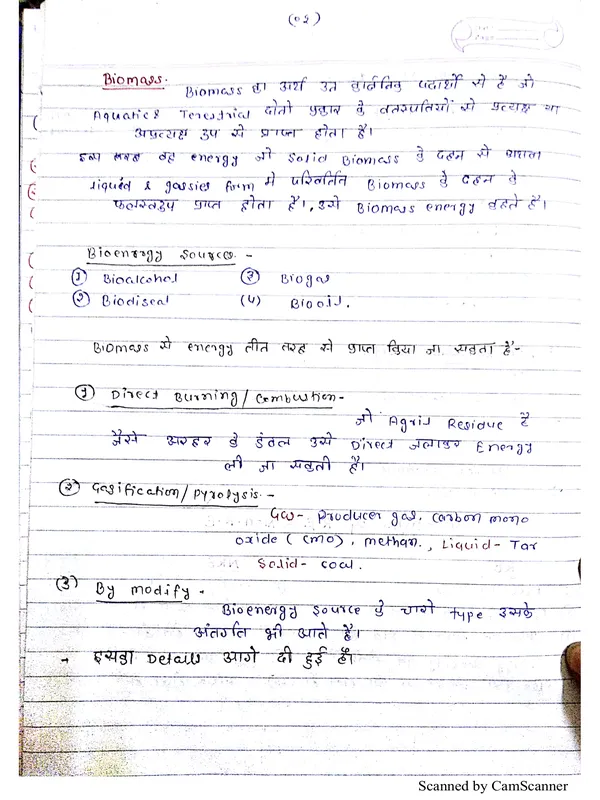 (02)
Biomass.
Biomass का अर्थ उन कार्बनिक पदार्थो से है जो
Aquatic & Terestrial दोनो प्रकार के वनस्पतियों से प्रत्यक्ष या
अप्रत्यक्ष रुप से प्राप्त होता है।
इस तरह वह energy जो Solid Biomass के दहन से अथवा
liquid & gassies form में परिवर्तित Biomass के दहन के
फलस्वरुप प्राप्त होता है।, उसे Biomass energy कहते है।
Bioenergy Source. -
① Bioalcohal ③ Biogas
② Biodiseal (4) Biooil.
Biomass से energy तीन तरह से प्राप्त किया जा सकता है-
① Direct Burning / Combustion -
जो Agril Residue है
जैसे अरहर के डंठल उसे Direct जलाकर Energy
ली जा सकती है।
② Gasification / Pyrolysis. -
Gas - Producer gas, carbon mono
oxide ( CMO) , methan. , Liquid - Tar
Solid - coal.
(3) By modify -
Bioenergy Source के चारो type इसके
अंतर्गत भी आते है।
- इसका Details आगे दी हुई है।
Scanned by CamScanner